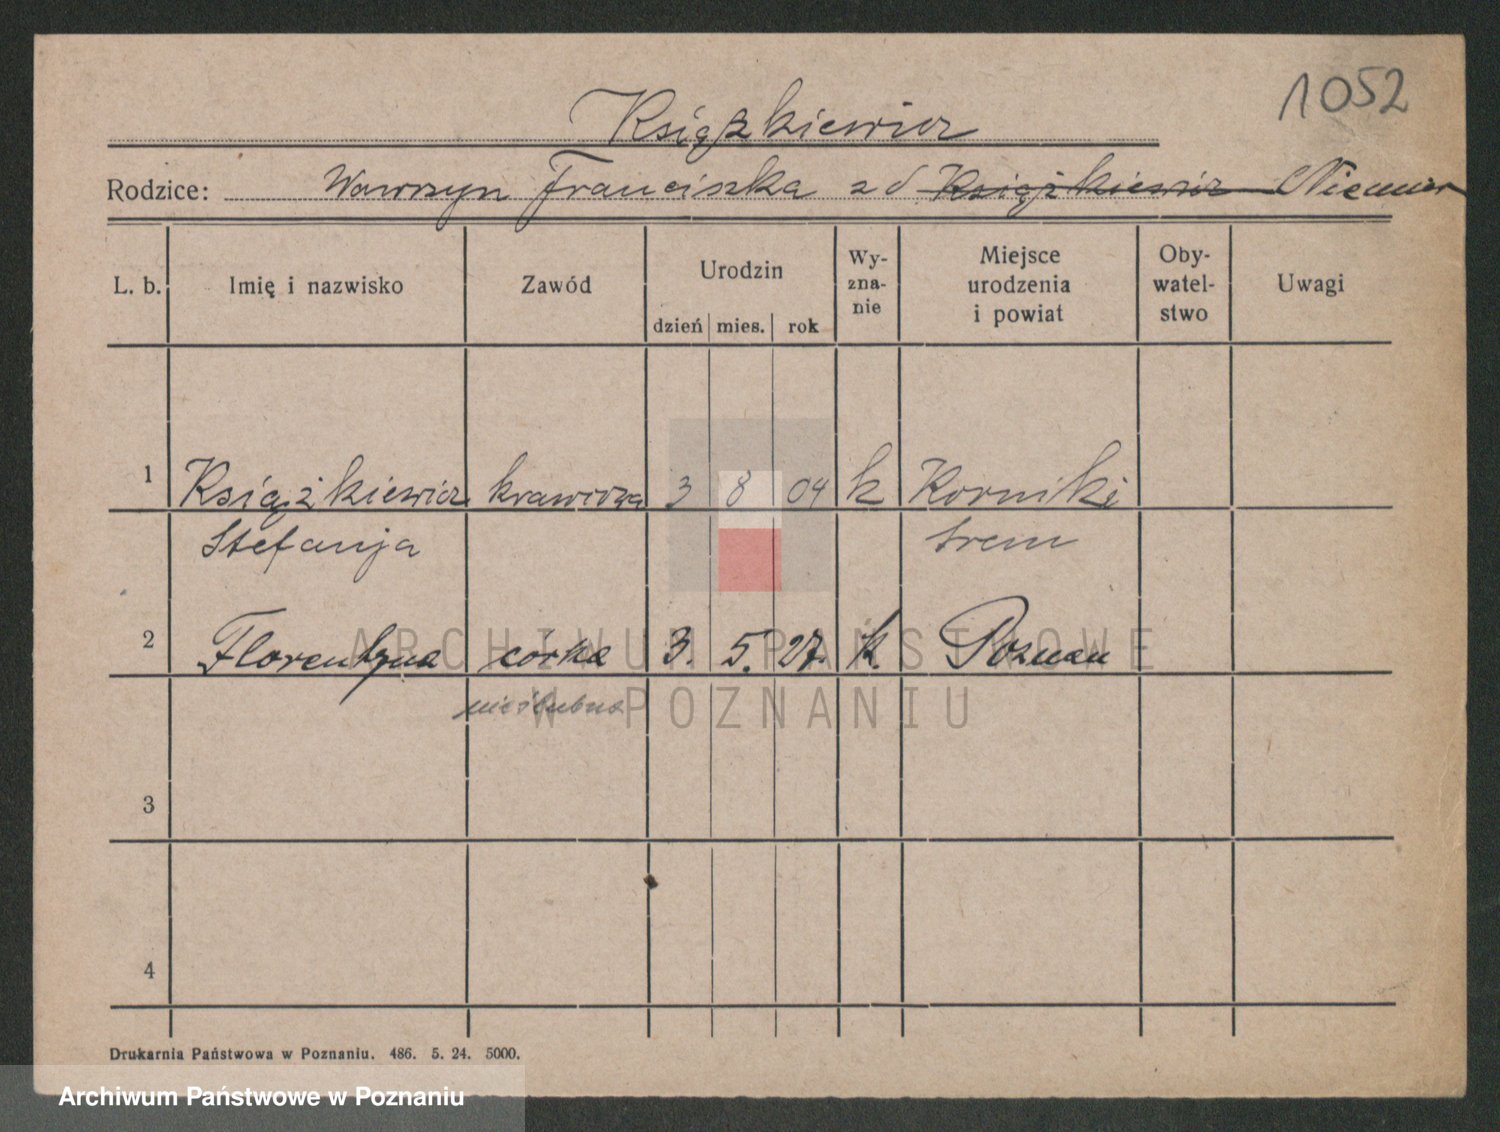 1052
Książkiewicz
Rodzice: Wawrzyn Franciszka z d Książkiewicz
L. b. Imię i nazwisko Zawód Urodzin dzień mies. rok Wy-zna-nie Miejsce urodzenia i powiat Oby-watel-stwo Uwagi
1 Książkiewicz krawcowa 3 8 04 k Korniki
Stefanja Srem
2 Florentyna córka 3. 5. 27. k. Poznan
nieślubna
3
4
ARCHIWUM PAŃSTWOWE
W POZNANIU
Drukarnia Państwowa w Poznaniu. 486. 5. 24. 5000.
Archiwum Państwowe w Poznaniu